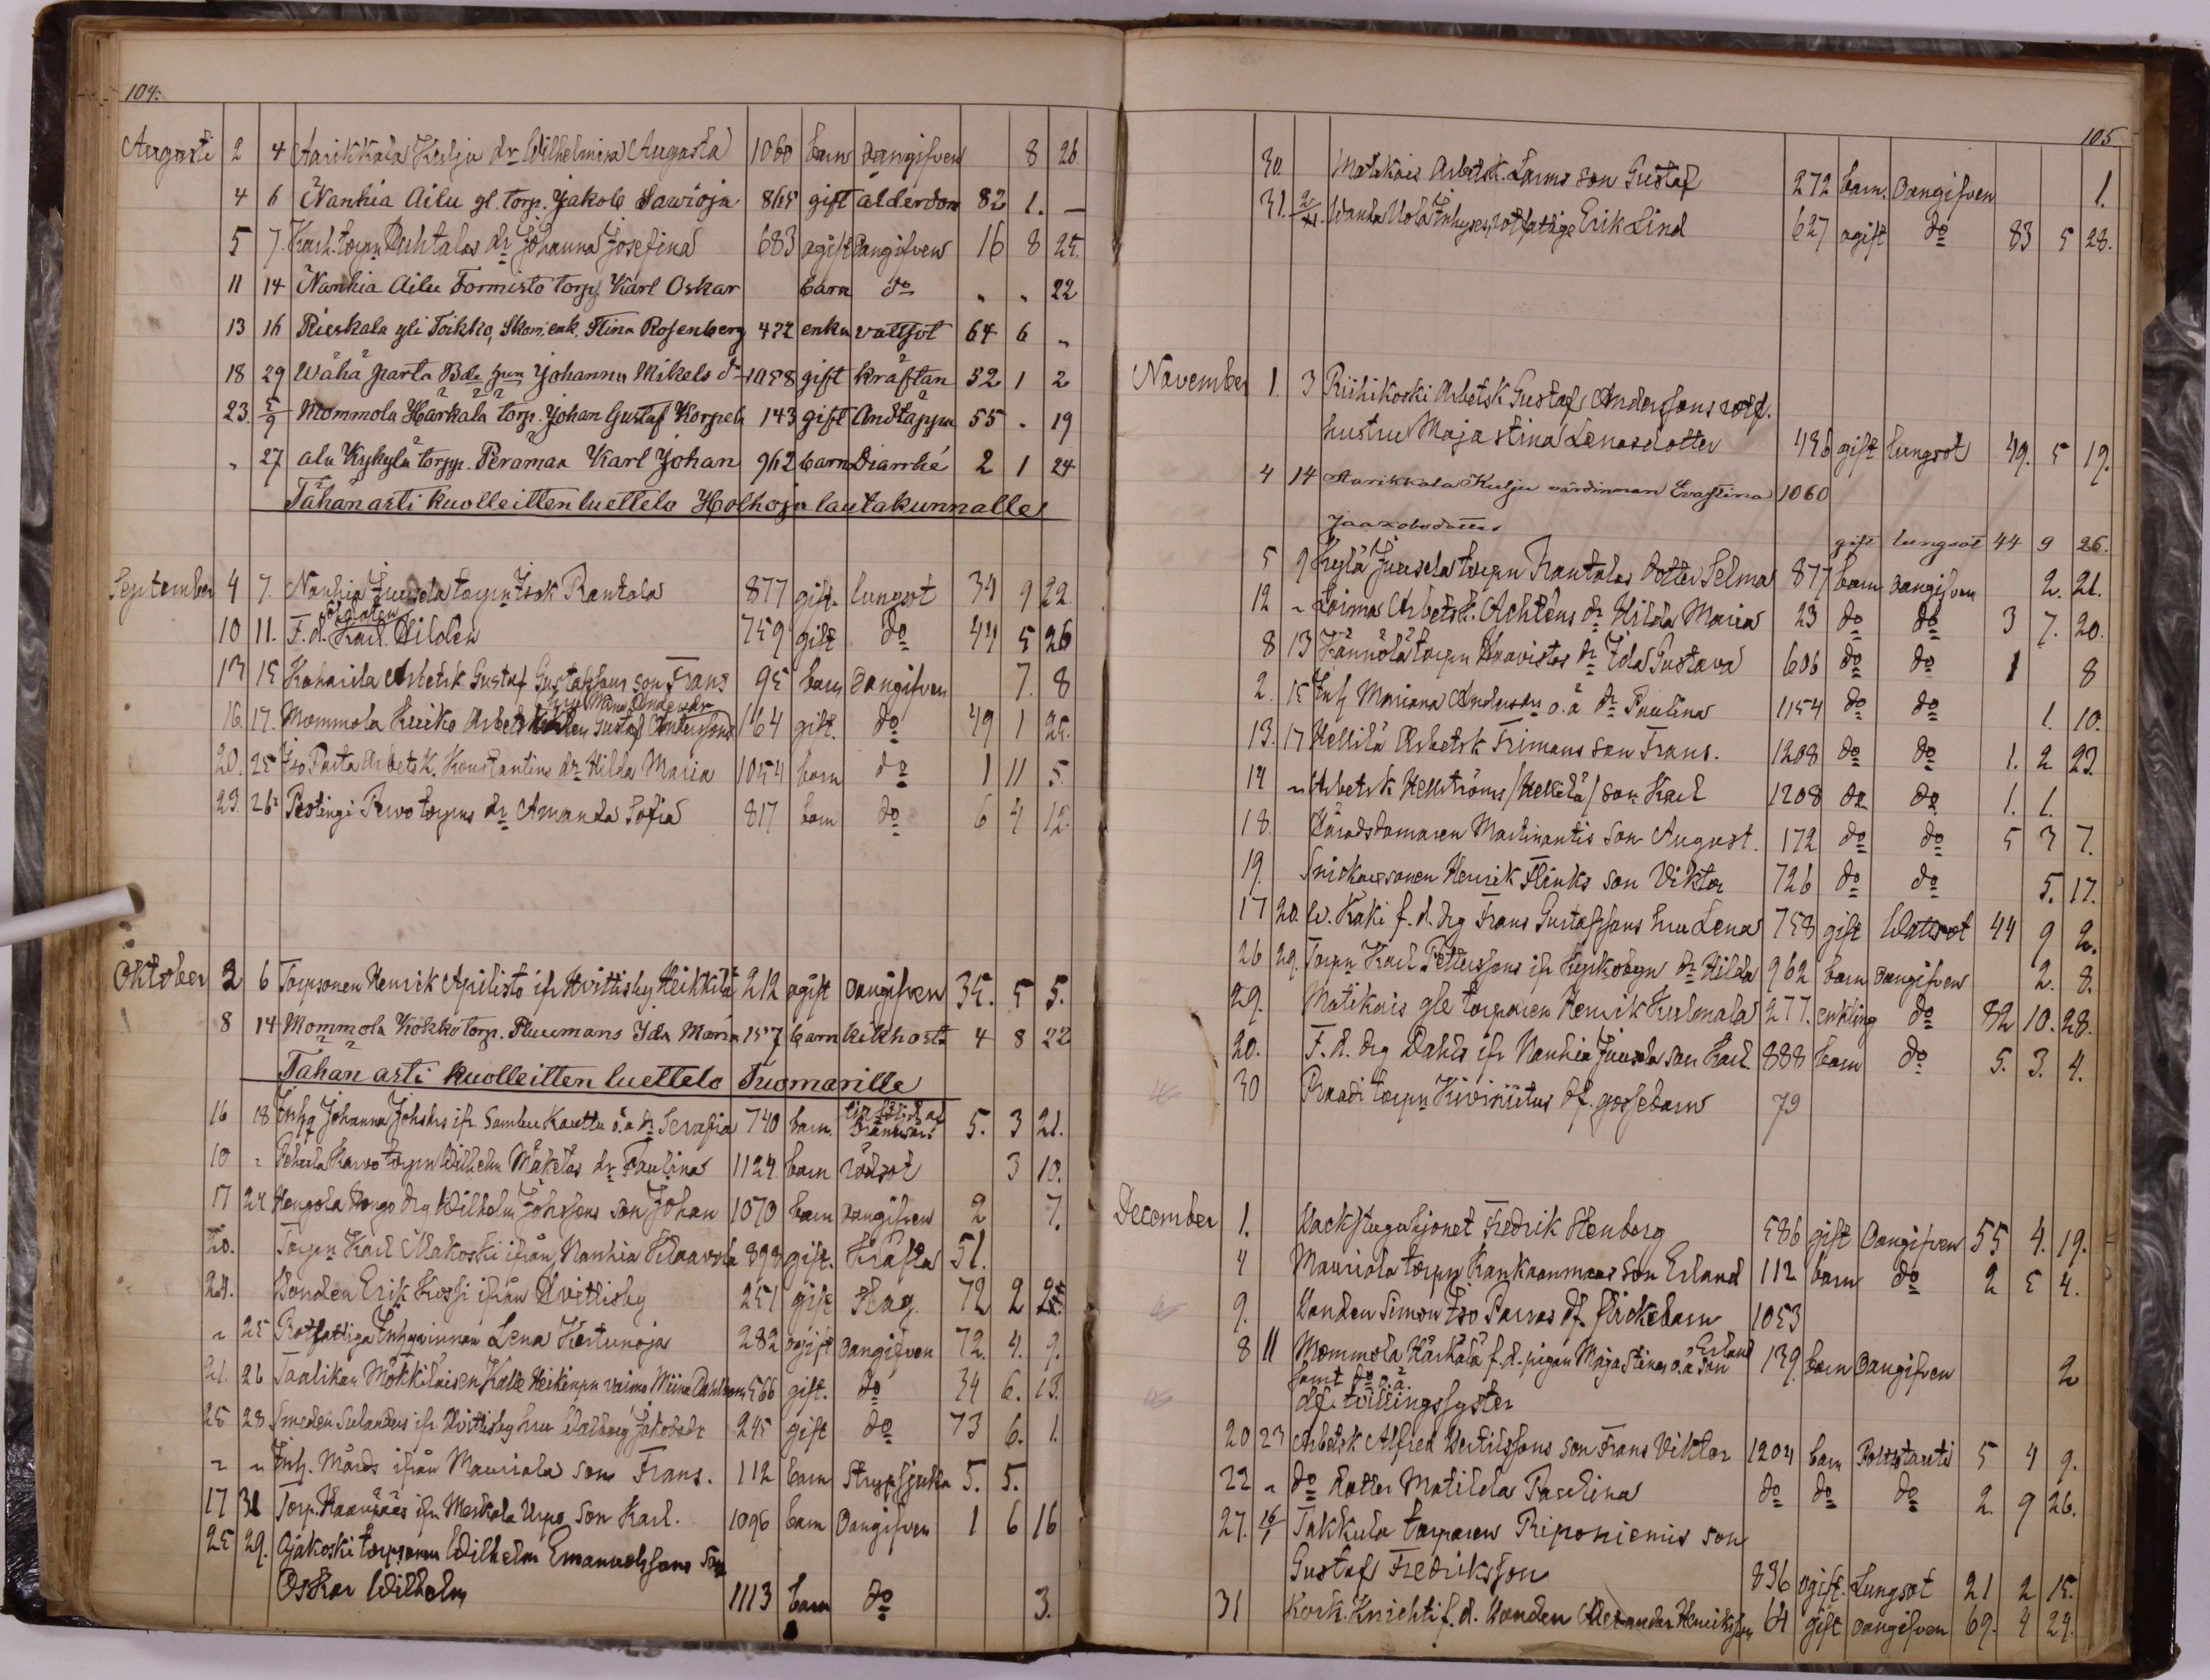 104.
Augusti 2 4 Aarikkala Kulju dr Wilhelmina Augusta 1060 barn oangifven 8 26.
4 6 Nanhia Ailu gl. torp. Jakob Sawioja 865 gift ålderdom 82 1. —
5 7. Karh. torpn Puhtalas dr Johanna Josefina 683 ogift oangifven 16 8 25.
11 14 Nanhia Ailu Tormisto torp. Karl Oskar barn do „ „ 22
13 16 Rieskala yli Toikko, Skom. enk. Stina Rosenberg 422 enka vattsot 64 6 „
18 29 Wähä Parta Johanna Mikels dr 1058 gift kräftan 52 1 2
23. 5/9 Mommola Härkälä torp. Johan Gustaf Korpela 143 gift Andtäppa 55 . 19
„ 27 ala Kykylä torpp. Peraman Karl Johan 962 barn Diarrhé 2 1 24
Tähän asti kuolleitten luettelo Holhoja lautakunnalle
September 4 7. Nanhia Juusela torpn Isak Rantala 877 gift. lungsot 34 9 22.
10 11. F. d. soldaten Karl Hildén 759 gift do 44 5 26
13 15 Koharila Arbetsk. Gustaf Gustafssons son Frans 95 barn oangifven 7. 8
16. 17. Mommola Kuiko Arbetsk. Gustaf Anderssons 164 gift. do 49 1 25.
20. 25 Iso Parta Arbetsk. Konstantins dr Hilda Maria 1054 barn do 1 11 5.
23. 26 Pestingi Rewo torpns dr Amanda Sofia 817 barn do 6 4 12.
Oktober 2 6 Torpsonen Henrik Apilisto ifr Hvittisby Heikkilä 212 ogift oangifven 35. 5 5.
8 14 Mommola Kokko torp. Ruumans Ida Maria 157 barn kikhosta 4 8 22
Tähän asti kuolleitten luettelo Tuomarille
16 18 Inhq Johanna Johsdrs ifr. Sambu Kouttu o. ä dr Serafia 740 barn. 5. 3 21.
10 „ torpn Wilhelm Mäkelas dr Paulina 1124. barn rödsot 3 10.
17 24 Hongola drg Wilhelm Johssons son Johan 1070 barn oangifven 2 7.
20. Torpn Karl Makoski ifrån Nanhia Klaavola 898 gift. Kräfta 51.
24. Bonden Erik Kossi ifrån Hvittisby 251 gift Slag. 72 2 25.
„ 25 Rotfattiga Inhqvinnan Lena Kertunoja 282 ogift oangifven 72. 4. 9.
21. 26 Taalikan Mökkiläisen Kalle Heikinpn vaimo Miina Dahlbom 566 gift. do 34 6. 13.
25 28 Smeden Selanders ifr. Hvittisby hru Walborg Jakobsdr 245 gift do 73 6. 1.
„ „ Inh. Mårds ifrån Mauriala son Frans. 112 barn Strypsjuka 5. 5.
17 31 Torp. Haanpääs ifr. Meskala Uspo son Karl. 1096 barn Oangifven 1 6 16
25 29. Ojakoski torpsonen Wilhelm Emanuelssons son
Oskar Wilhelm 1113 barn do 3.
105
30. Matikais Arbetsk. Larms son Gustaf 272 barn. oangifven 1.
31. Wanha Uola Inhyses, rotfattige Erik Lind 627 ogift do 83 5 28.
November 1. 3 Riihikoski Arbetsk Gustaf Anderssons
hustru Maja Stina Lenasdotter 496 gift lungsot 49. 5 19.
4 14 Aarikkala Kulju värdinnan Eva Stina 1060
Jaakobsdotter gift lungsot 44 9 26.
5 9 Kylä Juusela torpn Rantalas dotter Selma 877 barn oangifven 2. 21.
12 „ Loima Arbetsk. Achténs dr Hilda Maria 23 do do 3 7. 20.
8 13 Jännölä torpn Haavistos dr Ida Gustava 606 do do 1 8
2. 15 Inh Mariana Andersdrs o. ä dr Paulina 1154 do do 1. 10.
13. 17 Hellilä Arbetsk Frimans son Frans. 1208 do do 1. 2 23.
14 „ Arbetsk Hellströms /Hellilä/ son Karl 1208 do do 1. 1.
18. Häradsdomaren Martinantis son August. 172 do do 5 3 7.
19. Snickaresonen Henrik Flinks son Viktor 726 do do 5. 17.
17 20. W. Kaki f. d. drg Frans Gustafssons hru Lena 758 gift Wattsot 44 9 2.
26 29. Torpn Karl Petterssons ifr Kyrkobyn dr Hilda 962 barn oangifven 2. 8.
29. Matikais gle torparen Henrik Kulmala 277. enkling do 82 10. 28.
20. F. d. drg Dahls ifr Nanhia Juusela son Karl 888 barn do 5. 3. 4.
30 Raadi torpn Kiviniitus df. gossebarn 79
December 1. Backstuguhjonet Fredrik Stenberg 586 gift Oangifven 55 4. 19.
4 Mauriala torpn Kankaanmaas son Erland 112 barn do 2 5 4.
9. Bonden Simon Iso Parras df. flickebarn 1053
8 11 Mommola Härkälä f. d. pigan Maja Stinas o. ä son Erland 139. barn oangifven 2
samt do o. ä.
df. tvillingssyster
20 23 Arbetsk Alfred Bertilssons son Frans Viktor 1204 barn 5 4 9.
22 „ do dotter Matilda Paulina do do do 2. 9 26.
27. 16/1 Takkula torparen Riponiemis son
Gustaf Fredriksson 836 ogift. Lungsot 21 2 15.
31 Kork. Knichti f. d. bonden Alexander Henriksson 64 gift oangifven 69. 4 29.